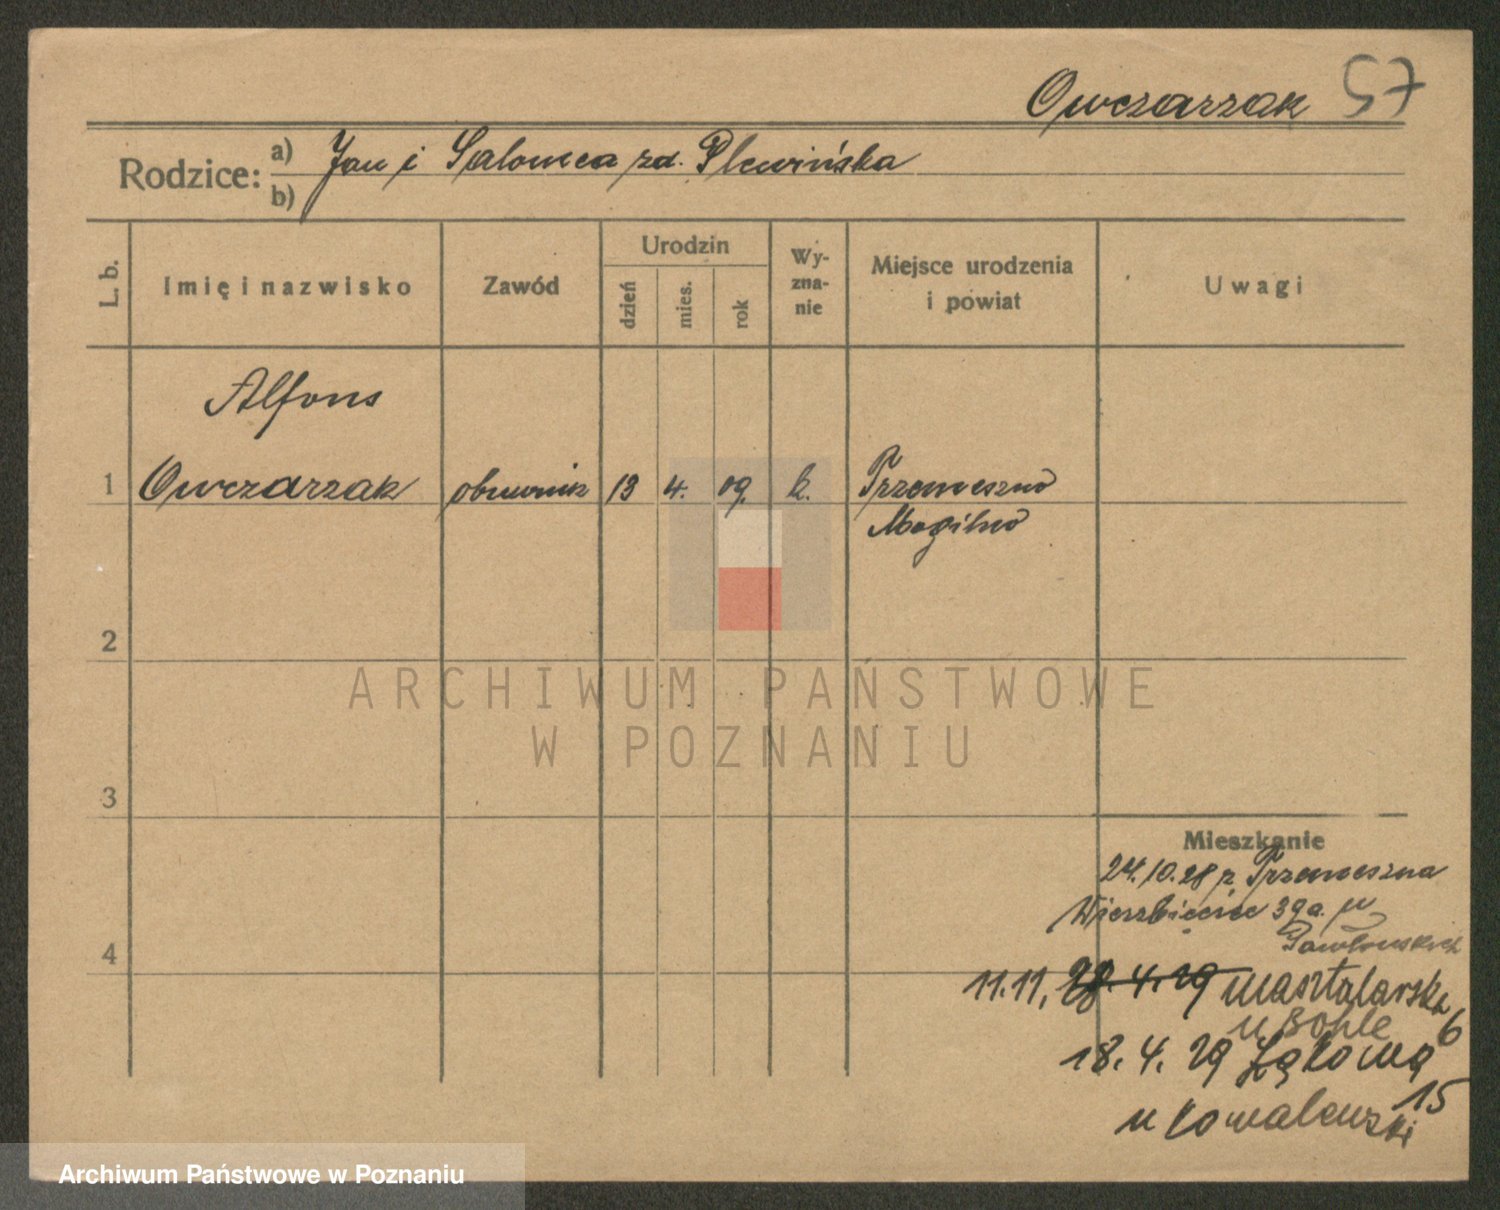 Owczarzak 57
Rodzice: a) Jan i Salomea zd. Plewińska
b)
L. b. Imię i nazwisko Zawód Urodzin dzień mies. rok Wy-zna-nie Miejsce urodzenia i powiat Uwagi
Alfons
1 Owczarzak obuwnik 13 4. 09. k. Trzemeszno
Mogilno
2
ARCHIWUM PAŃSTWOWE
W POZNANIU
3
Mieszkanie
24.10.28 z Trzemeszna
Wierzbięcice 39a. u
Pawłowskich
4
11.11. 28. 4. 29 Masztalarska 6
u Bohle
18. 4. 29 Łąkowa 15
u Kowalewski
Archiwum Państwowe w Poznaniu